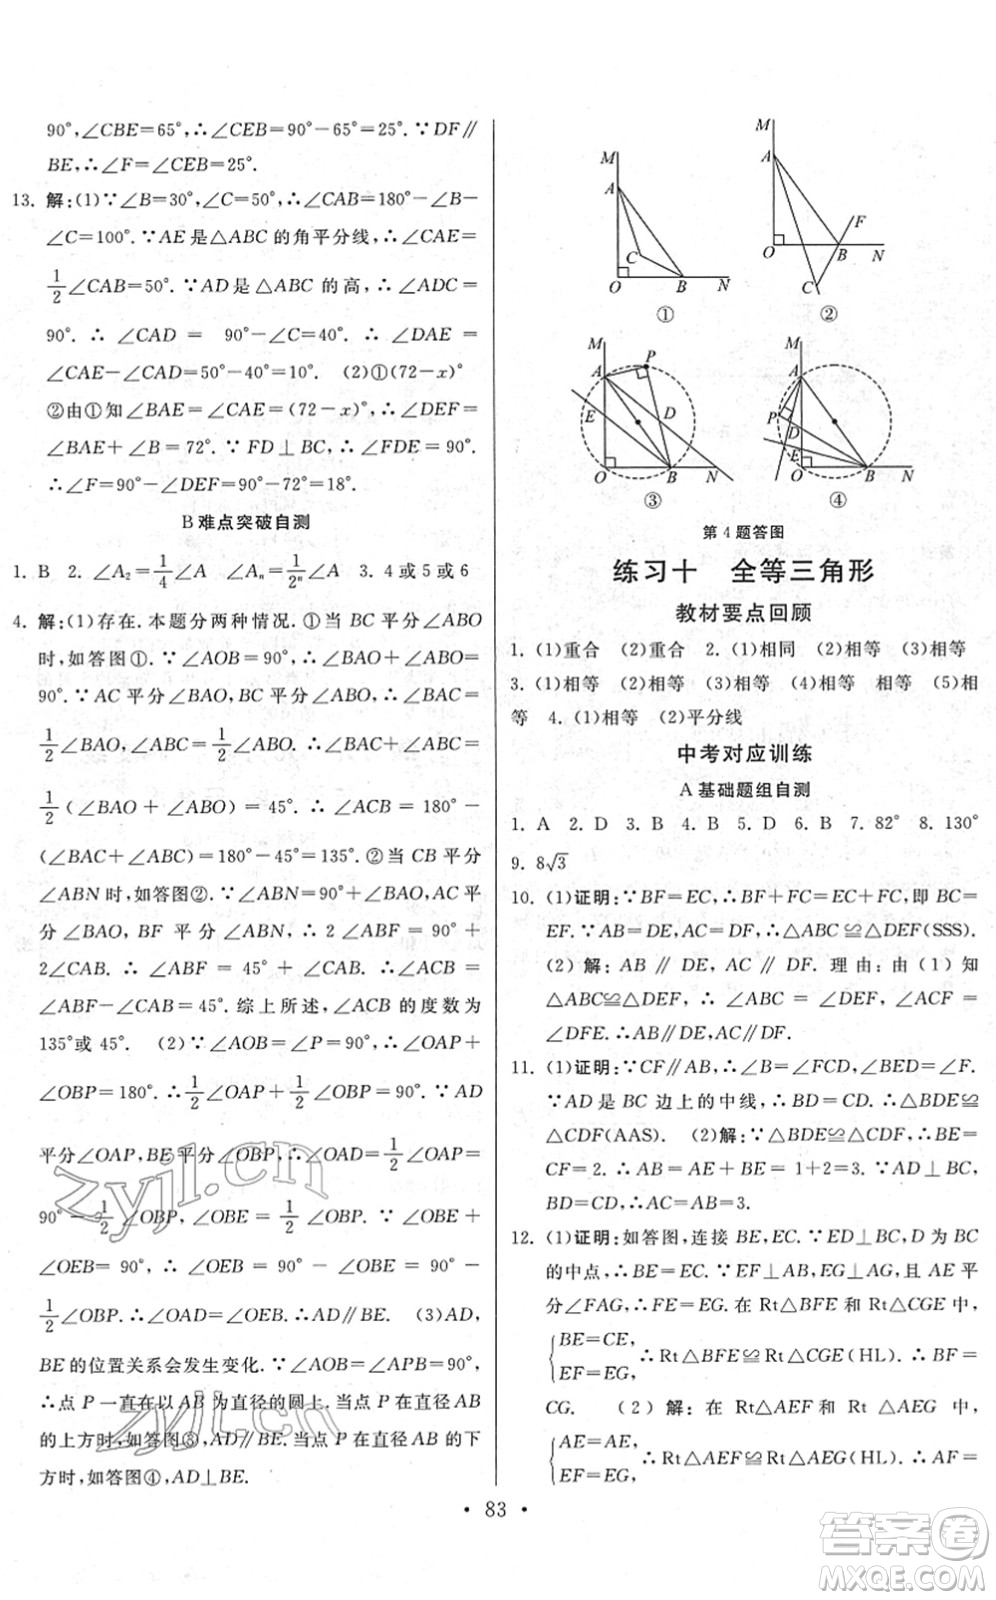 90°,∠CBE=65°,∴∠CEB=90°-65°=25°.∵DF∥
BE,∴∠F=∠CEB=25°.
13. 解:(1)∵∠B=30°,∠C=50°,∴∠CAB=180°-∠B-
∠C=100°.∵AE是△ABC的角平分线,∴∠CAE=
1/2∠CAB=50°.∵AD是△ABC的高,∴∠ADC=
90°.∴∠CAD= 90°-∠C=40°.∴∠DAE=
∠CAE-∠CAD=50°-40°=10°. (2)①(72-x)°
②由①知∠BAE=∠CAE=(72-x)°,∴∠DEF=
∠BAE+∠B=72°.∵FD⊥BC,∴∠FDE=90°.
∴∠F=90°-∠DEF=90°-72°=18°.
B难点突破自测
1. B 2. ∠A₂=1/4∠A ∠Aₙ=1/2ⁿ∠A 3. 4或5或6
4. 解:(1)存在.本题分两种情况.①当BC平分∠ABO
时,如答图①.∵∠AOB=90°,∴∠BAO+∠ABO=
90°.∵AC平分∠BAO,BC平分∠ABO,∴∠BAC=
1/2∠BAO,∠ABC=1/2∠ABO.∴∠BAC+∠ABC=
1/2(∠BAO+∠ABO)=45°.∴∠ACB=180°-
(∠BAC+∠ABC)=180°-45°=135°.②当CB平分
∠ABN时,如答图②.∵∠ABN=∠AOB+∠BAO,AC平
分∠BAO,BF平分∠ABN,∴2∠ABF=90°+
2∠CAB.∴∠ABF=45°+∠CAB.∴∠ACB=
∠ABF-∠CAB=45°.综上所述,∠ACB的度数为
135°或45°. (2)∵∠AOB=∠P=90°,∴∠OAP+
∠OBP=180°.∴1/2∠OAP+1/2∠OBP=90°.∵AD
平分∠OAP,BE平分∠OBP,∴∠OAD=1/2∠OAP=
90°-1/2∠OBP,∠OBE=1/2∠OBP.∵∠OBE+
∠OEB=90°,∴∠OEB=90°-∠OBE=90°-
1/2∠OBP.∴∠OAD=∠OEB.∴AD∥BE. (3)AD,
BE的位置关系会发生变化.∵∠AOB=∠APB=90°,
∴点P一直在以AB为直径的圆上.当点P在直径AB
的上方时,如答图③,AD∥BE.当点P在直径AB的下
方时,如答图④,AD⊥BE.
M A C O B N ①
M A F O B N C ②
M A P E D O B N ③
M A P D E O B N ④
第4题答图
练习十 全等三角形
教材要点回顾
1. (1)重合 (2)重合 2. (1)相同 (2)相等 (3)相等
3. (1)相等 (2)相等 (3)相等 (4)相等 相等 (5)相
等 4. (1)相等 (2)平分线
中考对应训练
A基础题组自测
1. A 2. D 3. B 4. B 5. D 6. B 7. 82° 8. 130°
9. 8√3
10. (1)证明:∵BF=EC,∴BF+FC=EC+FC,即BC=
EF.∵AB=DE,AC=DF,∴△ABC≌△DEF(SSS).
(2)解:AB∥DE,AC∥DF.理由:由(1)知
△ABC≌△DEF,∴∠ABC=∠DEF,∠ACB=
∠DFE.∴AB∥DE,AC∥DF.
11. (1)证明:∵CF∥AB,∴∠B=∠FCD,∠BED=∠F.
∵AD是BC边上的中线,∴BD=CD.∴△BDE≌
△CDF(AAS). (2)解:∵△BDE≌△CDF,∴BE=
CF=2.∴AB=AE+BE=1+2=3.∵AD⊥BC,
BD=CD,∴AC=AB=3.
12. (1)证明:如答图,连接BE,EC.∵ED⊥BC,D为BC
的中点,∴BE=EC.∵EF⊥AB,EG⊥AG,且AE平
分∠FAG,∴FE=EG.在Rt△BFE和Rt△CGE中,
{BE=CE,
EF=EG, ∴Rt△BFE≌Rt△CGE(HL).∴BF=
CG. (2)解:在Rt△AEF和Rt△AEG中,
{AE=AE,
EF=EG, ∴Rt△AEF≌Rt△AEG(HL).∴AF=
• 83 •
zyjl.cn
zyjl.cn
答案圈
MXQE.COM